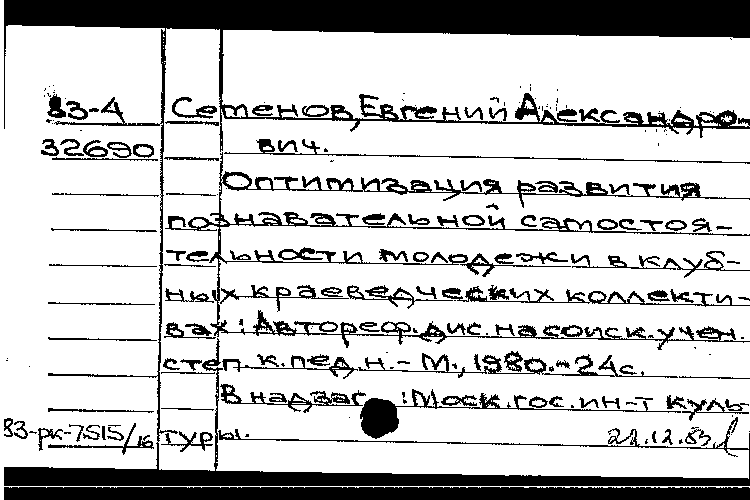 83-4 Семенов, Евгений Александро-
32690 вич.
Оптимизация развития
познавательной самостоя-
тельности молодежи в клуб-
ных краеведческих коллекти-
вах: Автореф. дис. на соиск. учен.
степ. к. пед. н. - М., 1980. - 24 с.
В надзаг.: Моск. гос. ин-т куль-
83-рк-7515/16 туры. 22.12.83